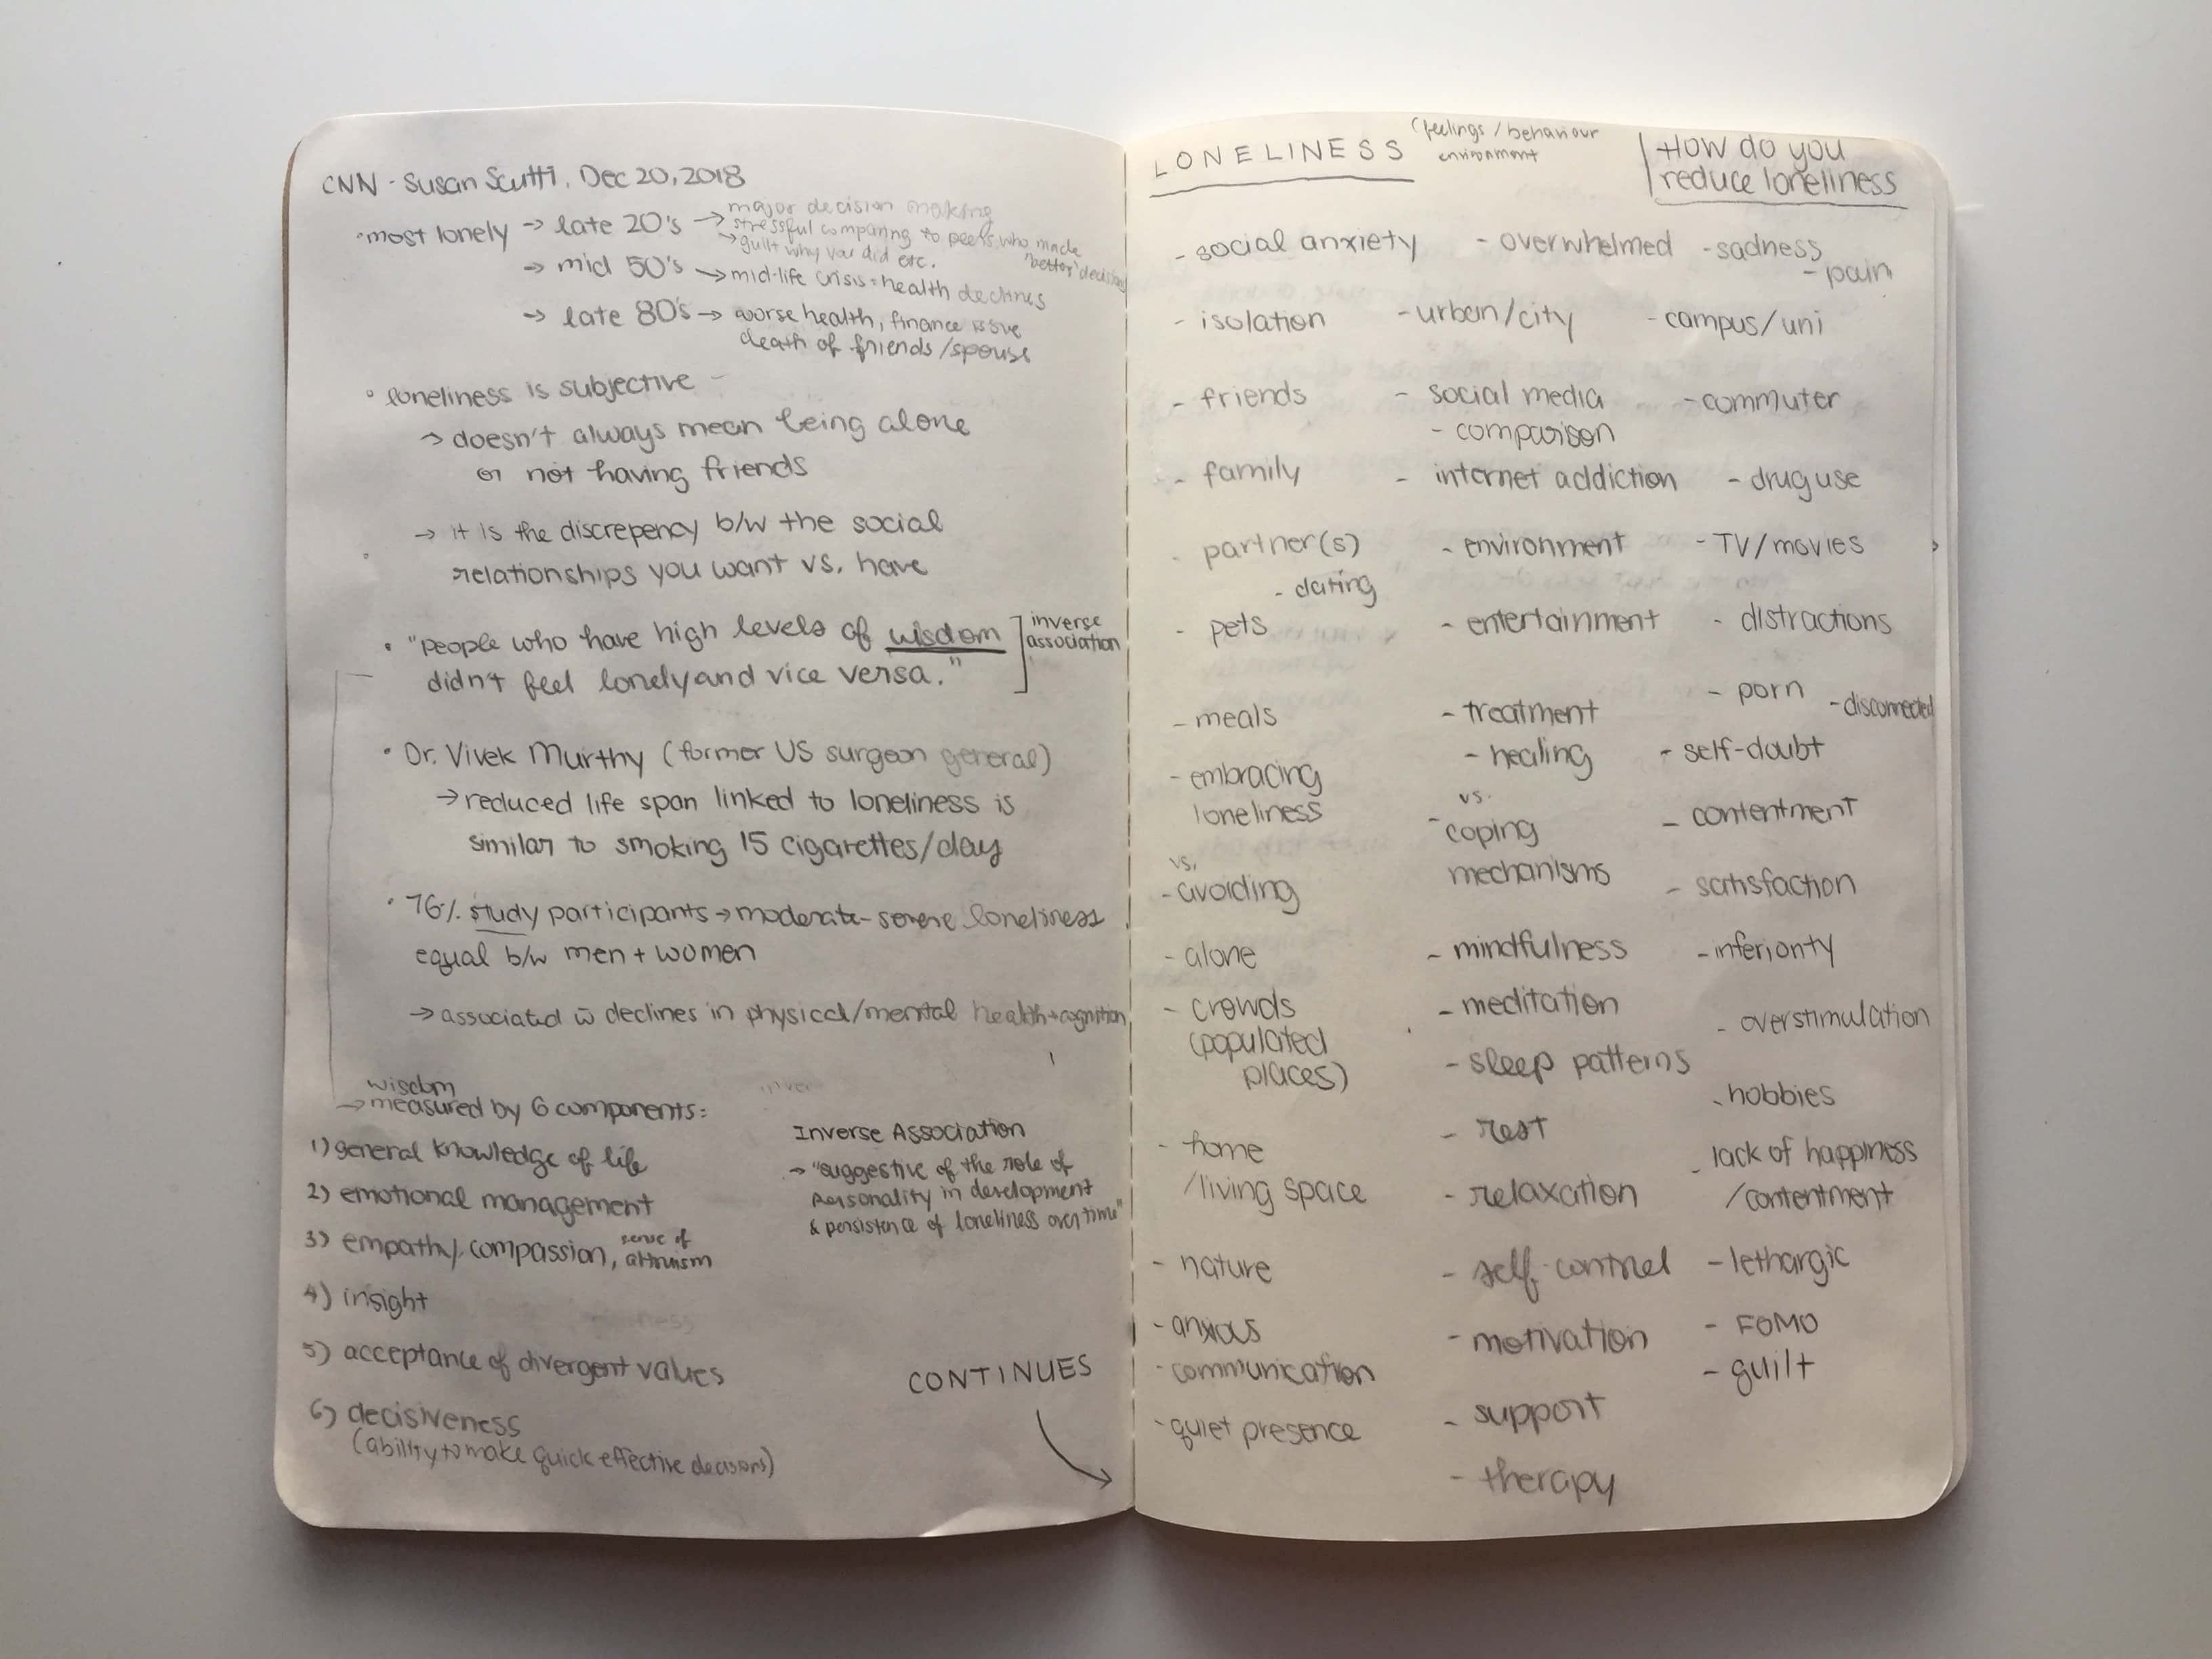 CNN - Susan Scutti, Dec 20, 2018
• most lonely → late 20's → major decision making
stressful comparing to peers who made 'better' decisions
→ guilt why you did etc.
→ mid 50's → mid-life crisis = health declines
→ late 80's → worse health, finance issue
death of friends/spouse
• loneliness is subjective -
→ doesn't always mean being alone
or not having friends
→ it is the discrepency b/w the social
relationships you want vs. have
• "people who have high levels of wisdom
didn't feel lonely and vice versa."
inverse
association
• Dr. Vivek Murthy (former US surgeon general)
→ reduced life span linked to loneliness is
similar to smoking 15 cigarettes/day
• 76% study participants → moderate-severe loneliness
equal b/w men + women
→ associated w̄ declines in physical/mental health + cognition
wisdom
→ measured by 6 components:
1) general knowledge of life
2) emotional management
3) empathy, compassion, sense of altruism
4) insight
5) acceptance of divergent values
6) decisiveness
(ability to make quick effective decisions)
Inverse Association
→ "suggestive of the role of
personality in development
& persistence of loneliness over time"
CONTINUES
LONELINESS
(feelings / behaviour
environment
How do you
reduce loneliness
- social anxiety
- isolation
- friends
- family
- partner(s)
- dating
- pets
- meals
- embracing
loneliness
vs.
- avoiding
- alone
- crowds
(populated
places)
- home
/living space
- nature
- anxious
- communication
- quiet presence
- overwhelmed
- urban/city
- social media
- comparison
- internet addiction
- environment
- entertainment
- treatment
- healing
vs.
- coping
mechanisms
- mindfulness
- meditation
- sleep patterns
- rest
- relaxation
- self-control
- motivation
- support
- therapy
- sadness
- pain
- campus/uni
- commuter
- drug use
- TV/movies
- distractions
- porn
- disconnected
- self-doubt
- contentment
- satisfaction
- inferiority
- overstimulation
- hobbies
- lack of happiness
/contentment
- lethargic
- FOMO
- guilt